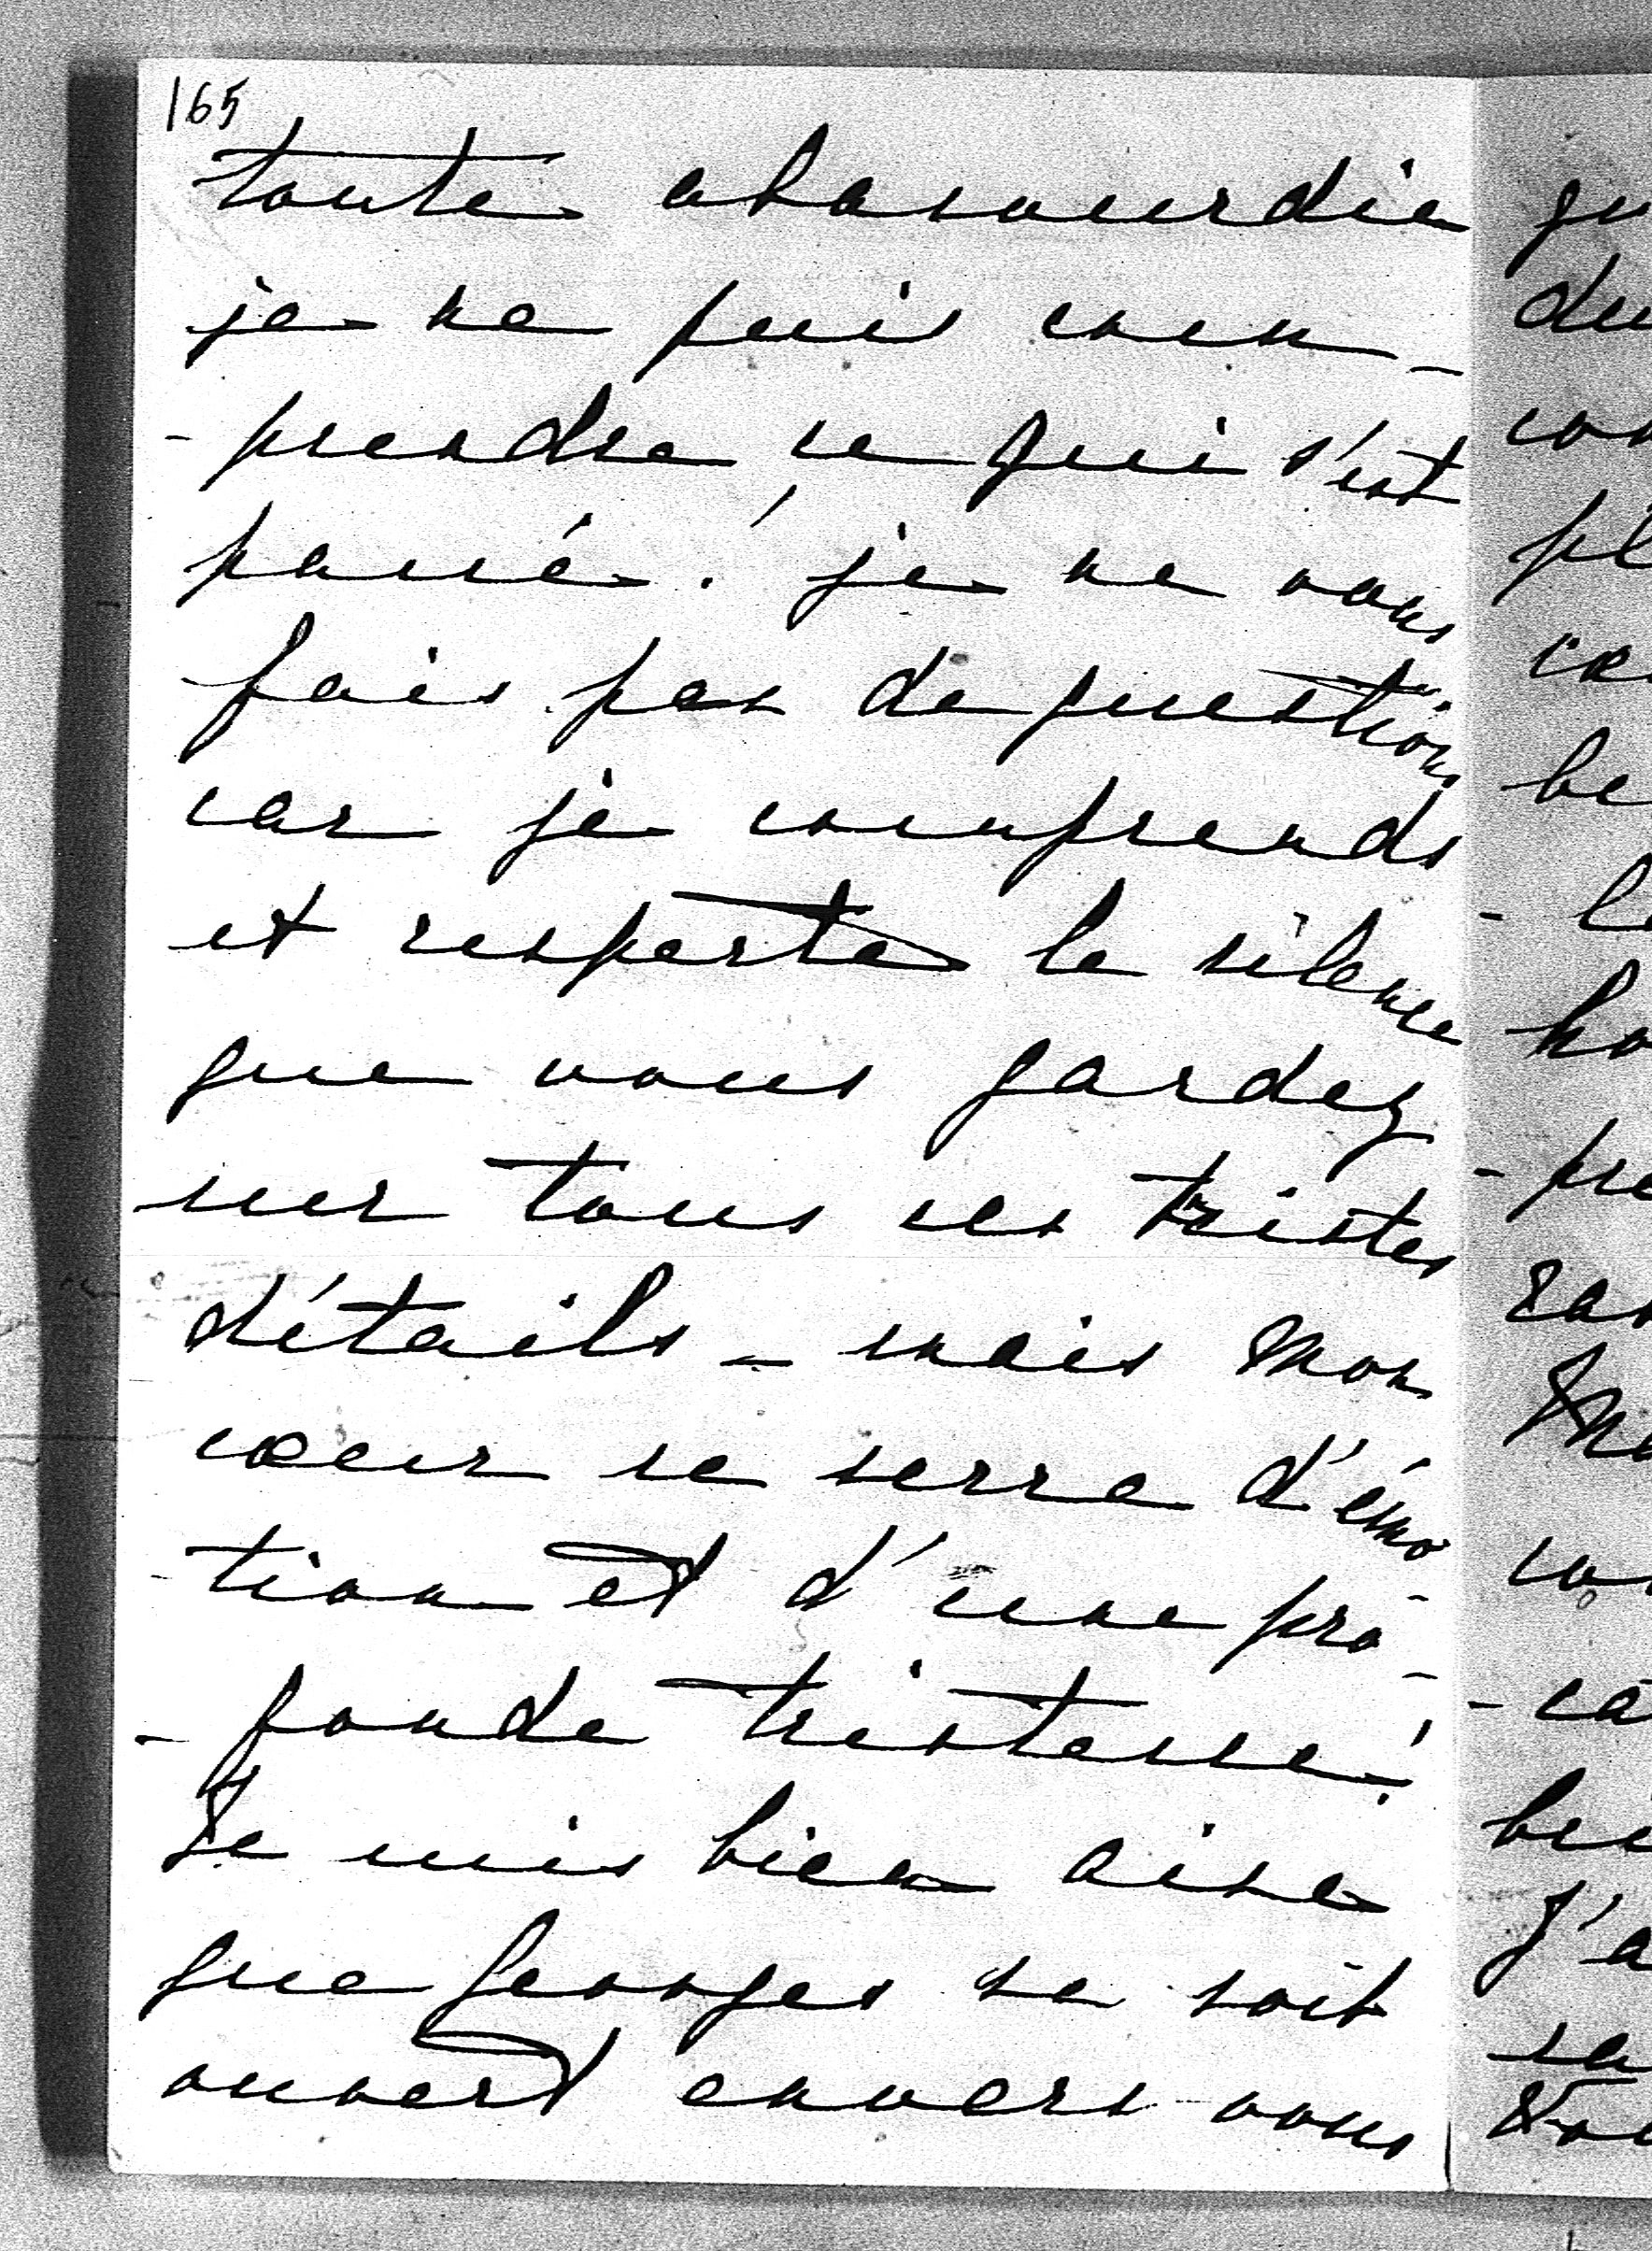 165
toute abasourdie
je ne puis com-
-prendre ce qui s'est
passé! je ne vous
fais pas de questions
car je comprends
et respecte le silence
que vous gardez
sur tous ces tristes
détails - mais mon
cœur se serre d'émo
-tion et d'une pro-
-fonde tristesse!
Je suis bien aise
que Georges se soit
ouvert envers vous